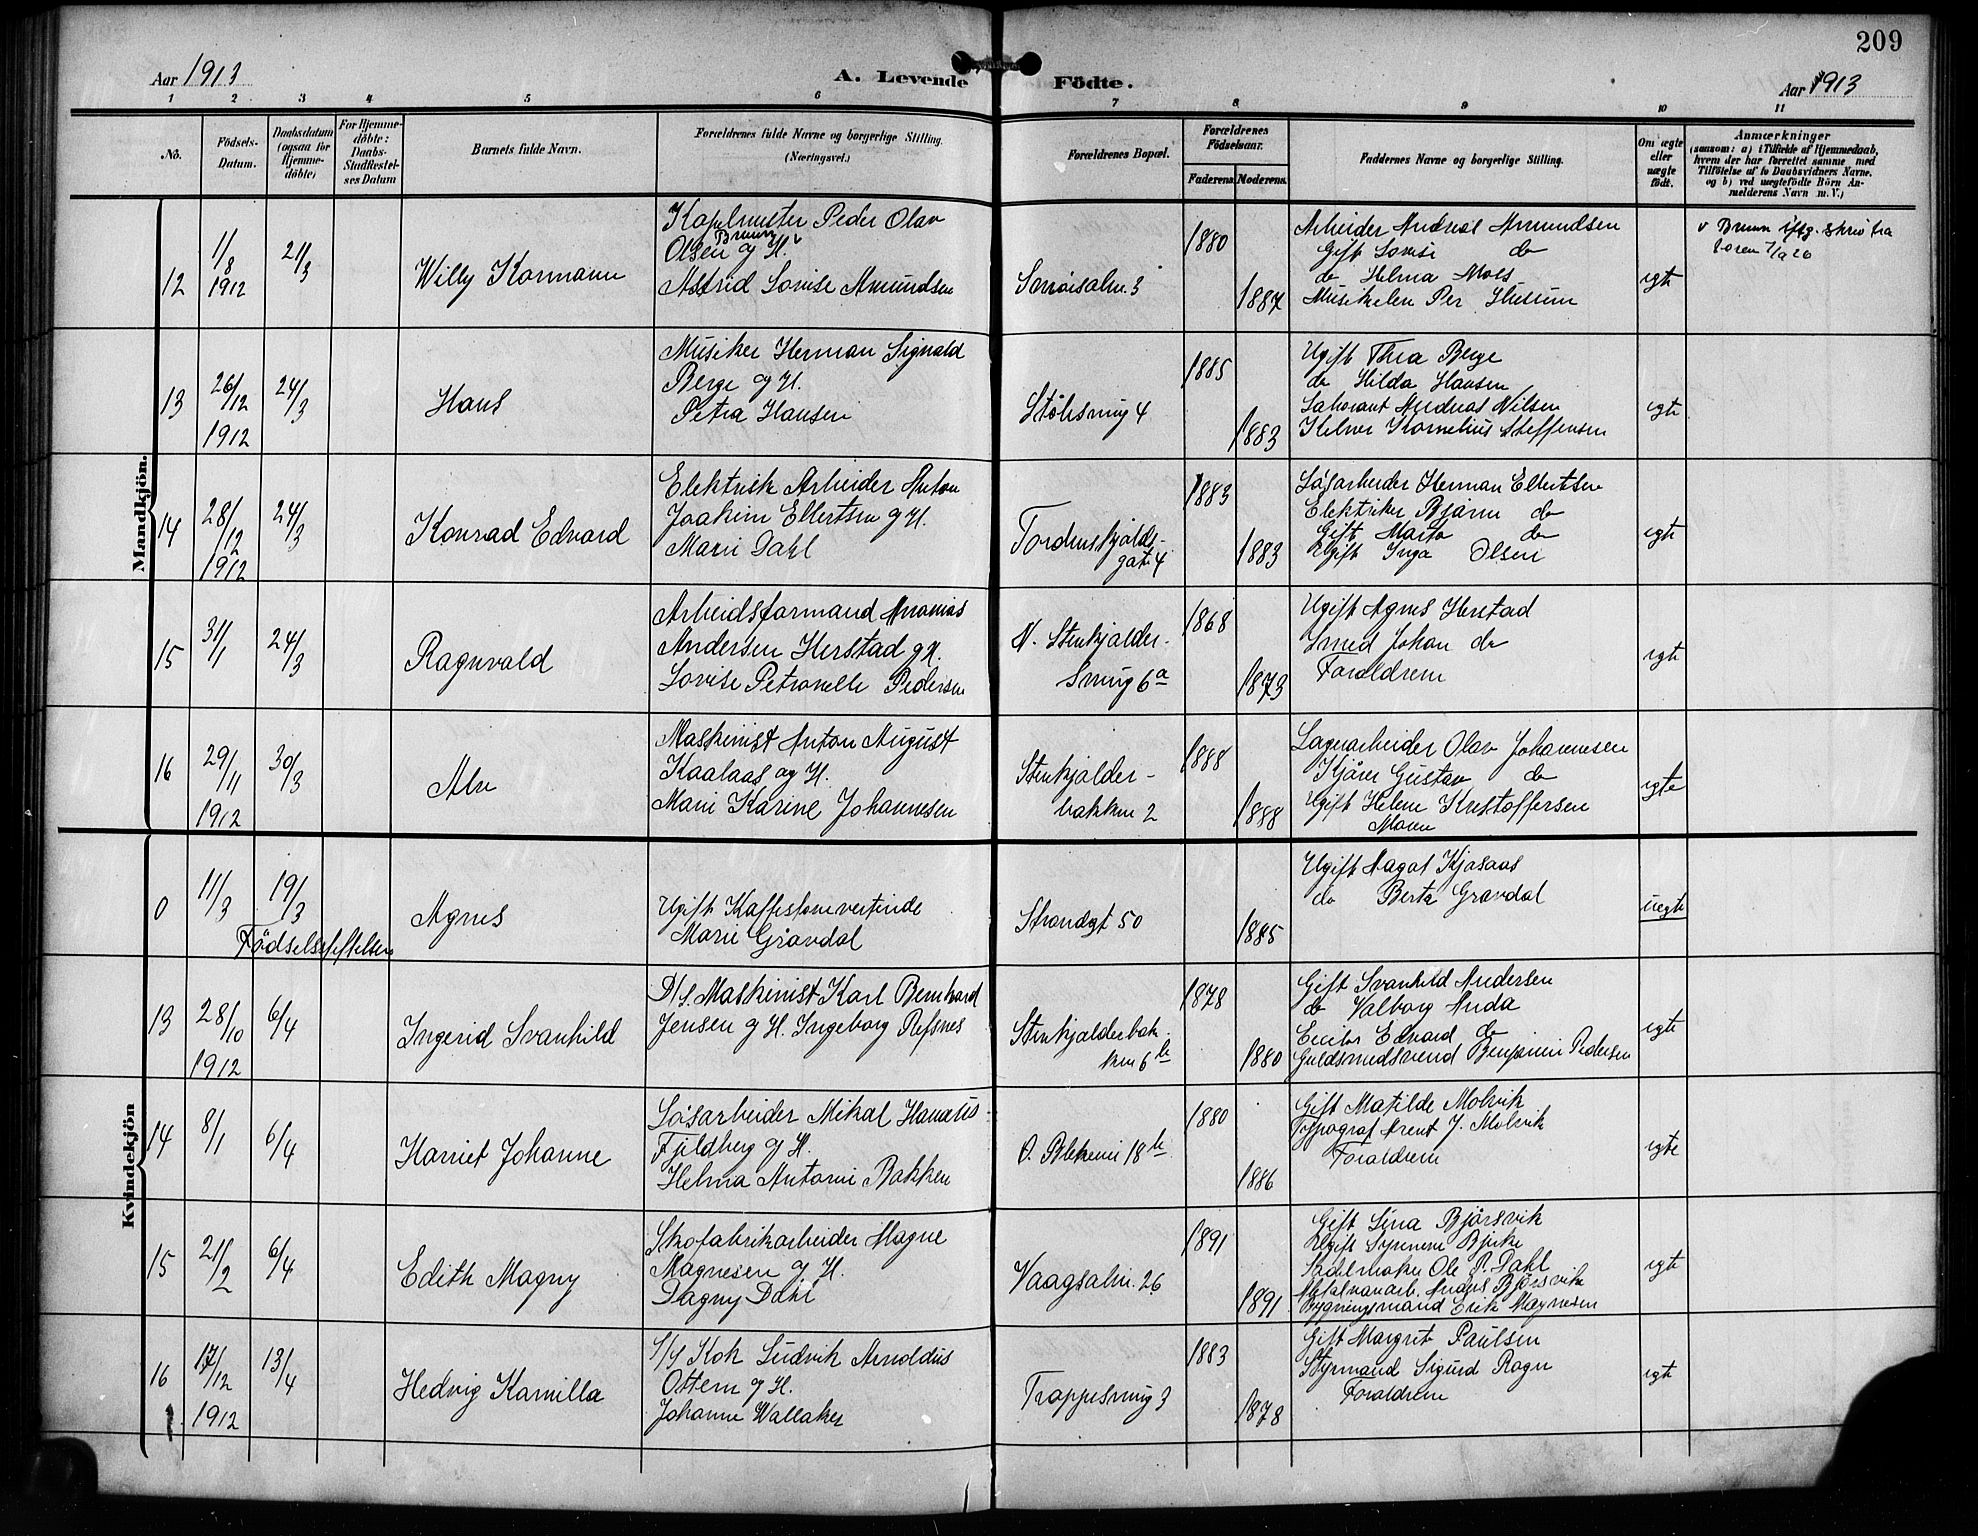 209
Aar 1913
A. Levende Födte.
Aar 1913
1 2 3 4 5 6 7 8 9 10 11
No.
Födsels-Datum.
Daabsdatum (ogsaa for Hjemme-döbte)
For Hjemme-döbte: Daabs-Stadfæstel-ses Datum
Barnets fulde Navn.
Forældrenes fulde Navne og borgerlige Stilling. (Næringsvei.)
Forældrenes Bopæl.
Forældrenes Födselsaar.
Faderens. Moderens.
Faddernes Navne og borgerlige Stilling.
Om ægte eller uægte födt.
Anmærkninger
(saasom: a) i Tilfælde af Hjemmedaab,
hvem der har forrettet samme med
Tilföielse af to Daabsvidners Navne,
og b) ved uægtefödte Börn An-
melderens Navn m. V.)
Mandkjön.
12
1/8 1912
21/3
Willy Kormann
Kapelmester Peder Olav
Bruun v
Olsen og H.
Astrid Lovise Amundsen
1880
1887
Arbeider Andreas Amundsen
Gift Lovise do
do Helma Moss
Per
egte
v Bruun iflg. skriv fra
13
26/12 1912
24/3
Hans
Musiker Herman Sigvald
Berge og H.
Petra Hansen
Stølesmug 4
1885
1883
Ugift Thea Berge
do Hilda Hansen
Andreas Nilsen
Kelner Kornelius Steffensen
egte
14
28/12 1912
24/3
Konrad Edvard
Elektrisk Arbeider Anton
Joakim Ellertsen og H.
Marie Dahl
Tordenskjolds-
gate 4
1883
1883
Løsarbeider Herman Ellertsen
Elektriker Bjarne do
Gift Marta do
Ugift Inga Olsen
egte
15
31/1
24/3
Ragnvald
Arbeidsformand Ananias
Andersen Herstad og H.
Lovise Petronelle Pedersen
N. Stenkjelder-
smug 6a
1868
1873
Ugift Agnes Herstad
Smed Johan do
Forældrene
egte
16
29/11 1912
30/3
Alv
Maskinist Anton August
Kaalaas og H.
Marie Karine Johannesen
Stenkjelder-
bakken 2
1888
1888
Lagerarbeider Olav Johannesen
Gustav do
Ugift Helene Kristoffersen
Moren
egte
Kvindekjön
0
11/3
19/3
Fødselsstiftelsen
Agnes
Ugift Kaffestuevertinde
Marie Gravdal
Strandgt 50
1885
Ugift Magot Kjosaas
do Berta Gravdal
uegte
13
28/10 1912
6/4
Ingerid Svanhild
D/S. Maskinist Karl Bernhard
Jensen og H. Ingeborg Refsnes
Stenkjelderbak-
ken 6b
1878
1880
Gift Svanhild Andersen
do Valborg Anda
Edvard do
Guldsmedsvend Benjamin Pedersen
egte
14
8/1
6/4
Harriet Johanne
Løsarbeider Mikal Hanatus
Fjeldberg og H.
Helma Antonie Bakken
Ø. Blekevei 18b
1880
1886
Gift Matilde Molvik
Typograf Arent J. Molvik
Forældrene
egte
15
21/2
6/4
Edith Magny
Skofabrikarbeider Magne
Magnesen og H.
Dagny Dahl
Vaagsalm. 26
1891
1891
Gift Lina Bjørsvik
Ugift Synneve Bjerke
Sadelmaker Ole P. Dahl
Metalvarearb. Anders Bjørsvik
Bygningsmand Erik Magnesen
egte
16
17/12 1912
13/4
Hedvig Kamilla
S/S Kok Ludvik Arnoldus
Ottern og H.
Johanne Wallaker
Trappesmug 3
1883
1878
Gift Margrete Paulsen
Styrmand Sigurd Ragn
Forældrene
egte